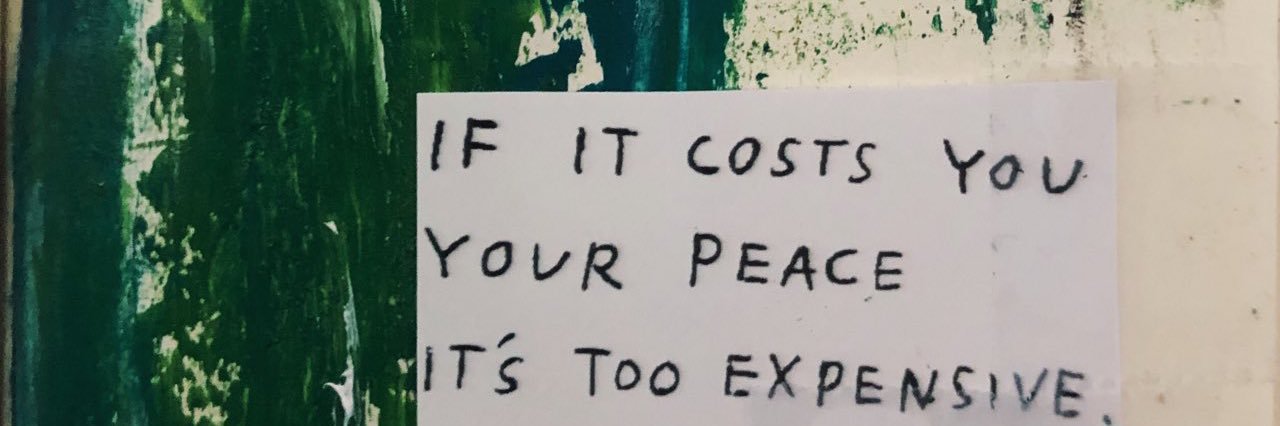 IF IT COSTS YOU
YOUR PEACE
IT'S TOO EXPENSIVE.